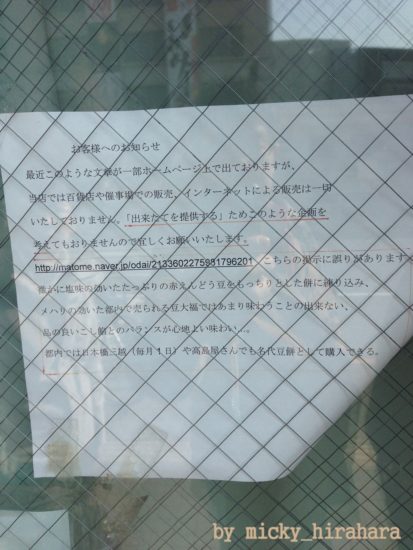 お客様へのお知らせ
最近このような文章が一部ホームページ上で出ておりますが、
当店では百貨店や催事場での販売、インターネットによる販売は一切
いたしておりません。「出来たてを提供する」ためこのような企画を
考えてもおりませんので宜しくお願いいたします。
http://matome.naver.jp/odai/2133602275981796201 こちらの掲示に誤りがあります
微かに塩味の効いたたっぷりの赤えんどう豆をもっちりとした餅に練り込み、
メハリの効いた都内で売られる豆大福ではあまり味わうことの出来ない、
品の良いこし餡とのバランスが心地よい味わい…。
都内では日本橋三越（毎月１日）や高島屋さんでも名代豆餅として購入できる。
by micky_hirahara